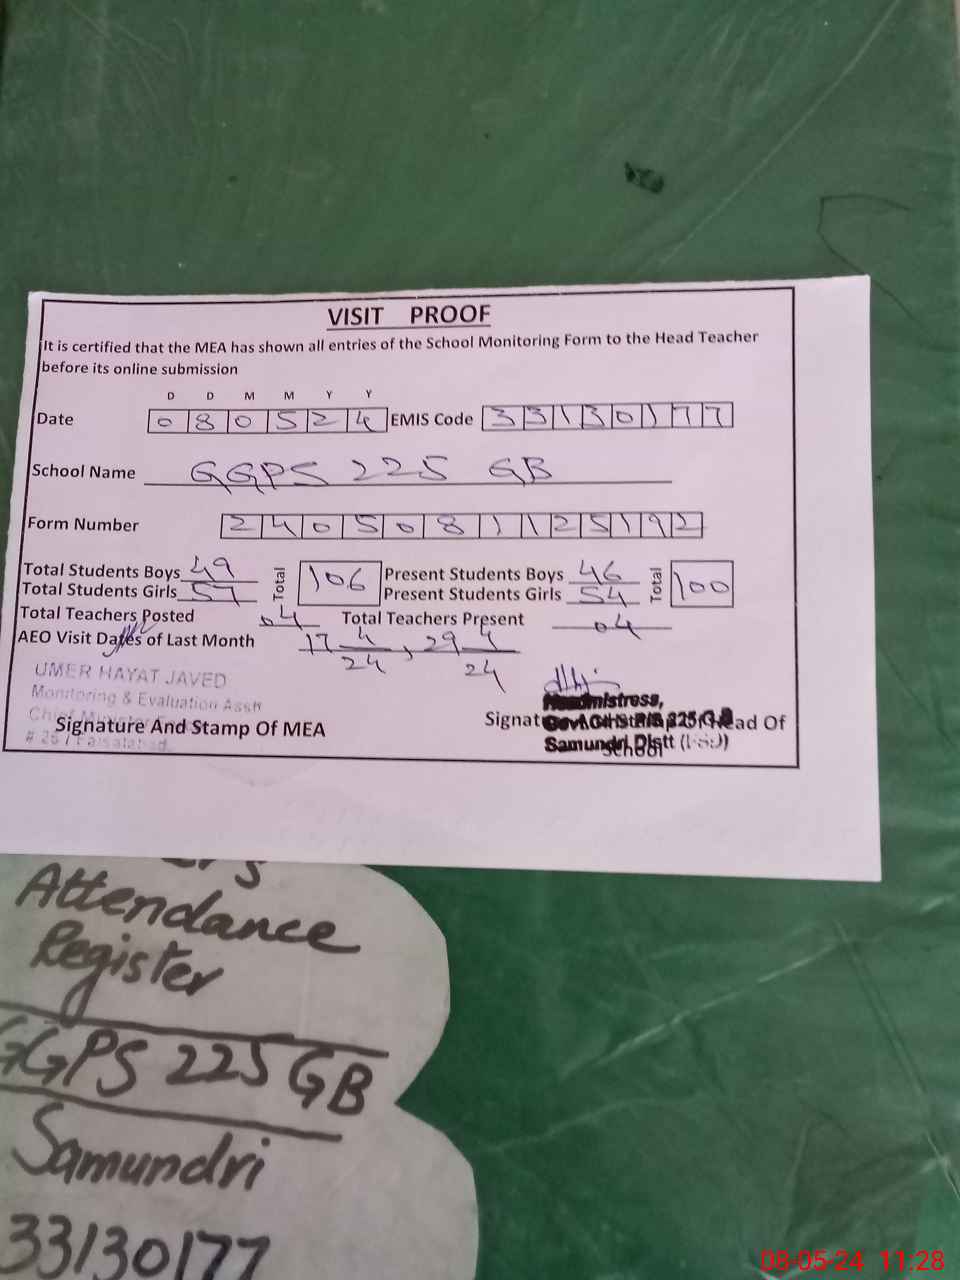 VISIT PROOF
It is certified that the MEA has shown all entries of the School Monitoring Form to the Head Teacher
before its online submission
D D M M Y Y
Date 080524 EMIS Code 33130177
School Name GGPS 225 GB
Form Number 240508112592
Total Students Boys 49 Total 106 Present Students Boys 46 Total 100
Total Students Girls 57 Present Students Girls 54
Total Teachers Posted 04 Total Teachers Present 04
AEO Visit Dates of Last Month 17 4/24, 29 4/24
UMER HAYAT JAVED
Monitoring & Evaluation Asstt
Headmistress,
Signature And Stamp Of MEA
Head Of
School
Faisalabad
Samundri Distt
Attendance
Register
GGPS 225 GB
Samundri
33130177
08-05-24 11:28